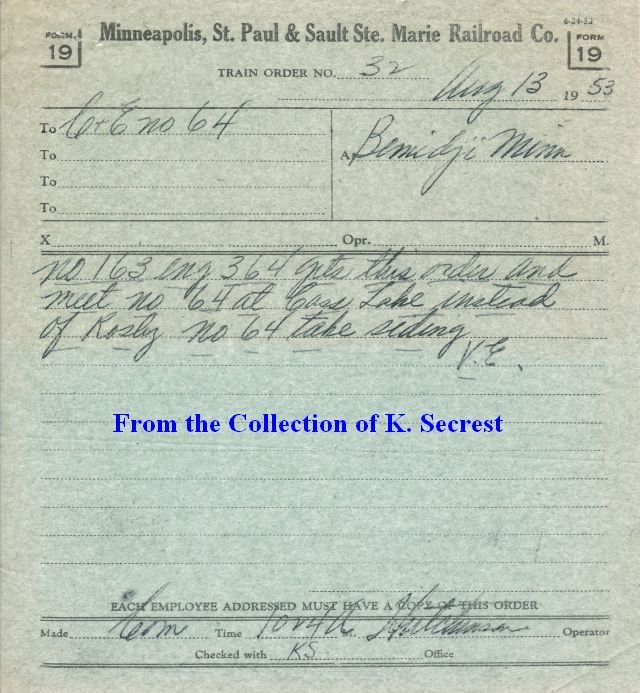 6-24-53
FORM 19 Minneapolis, St. Paul & Sault Ste. Marie Railroad Co. FORM 19
TRAIN ORDER NO. 32
Aug 13 1953
To C+E no 64
At Bemidji Minn
To
To
To
X Opr. M.
no 163 eng 364 gets this order and
meet no 64 at Cass Lake instead
of Rosby no 64 take siding
V.E.
From the Collection of K. Secrest
EACH EMPLOYEE ADDRESSED MUST HAVE A COPY OF THIS ORDER
Made Com Time Hutchinson Operator
Checked with KS Office